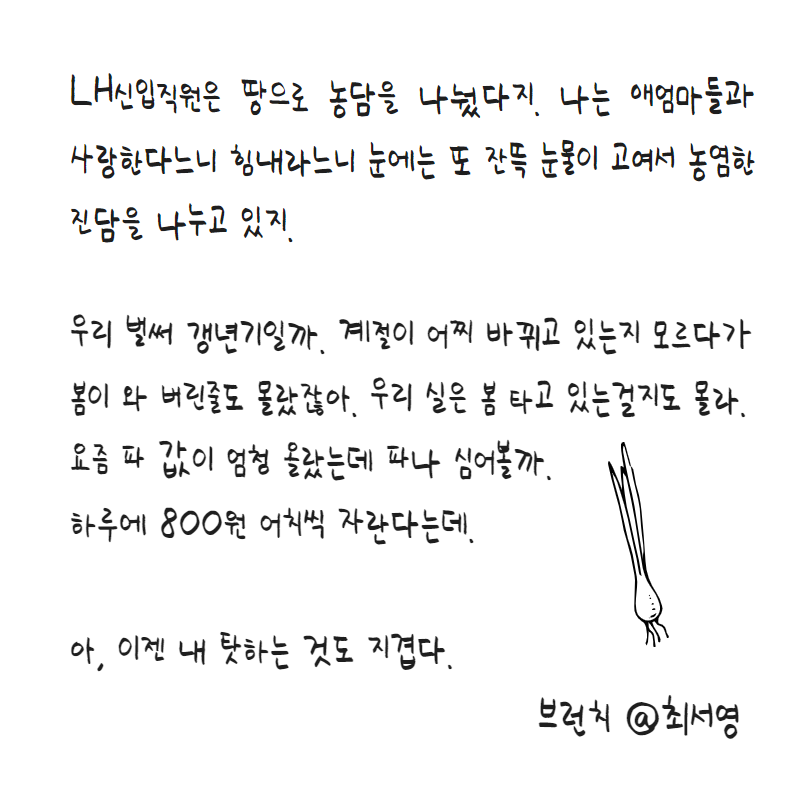 LH신입직원은 땅으로 농담을 나눴다지. 나는 애엄마들과
사랑한다느니 힘내라느니 눈에는 또 잔뜩 눈물이 고여서 농염한
진담을 나누고 있지.
우리 벌써 갱년기일까. 계절이 어찌 바뀌고 있는지 모르다가
봄이 와 버린줄도 몰랐잖아. 우리 실은 봄 타고 있는걸지도 몰라.
요즘 파 값이 엄청 올랐는데 파나 심어볼까.
하루에 800원 어치씩 자란다는데.
아, 이젠 내 탓하는 것도 지겹다.
브런치 @최서영